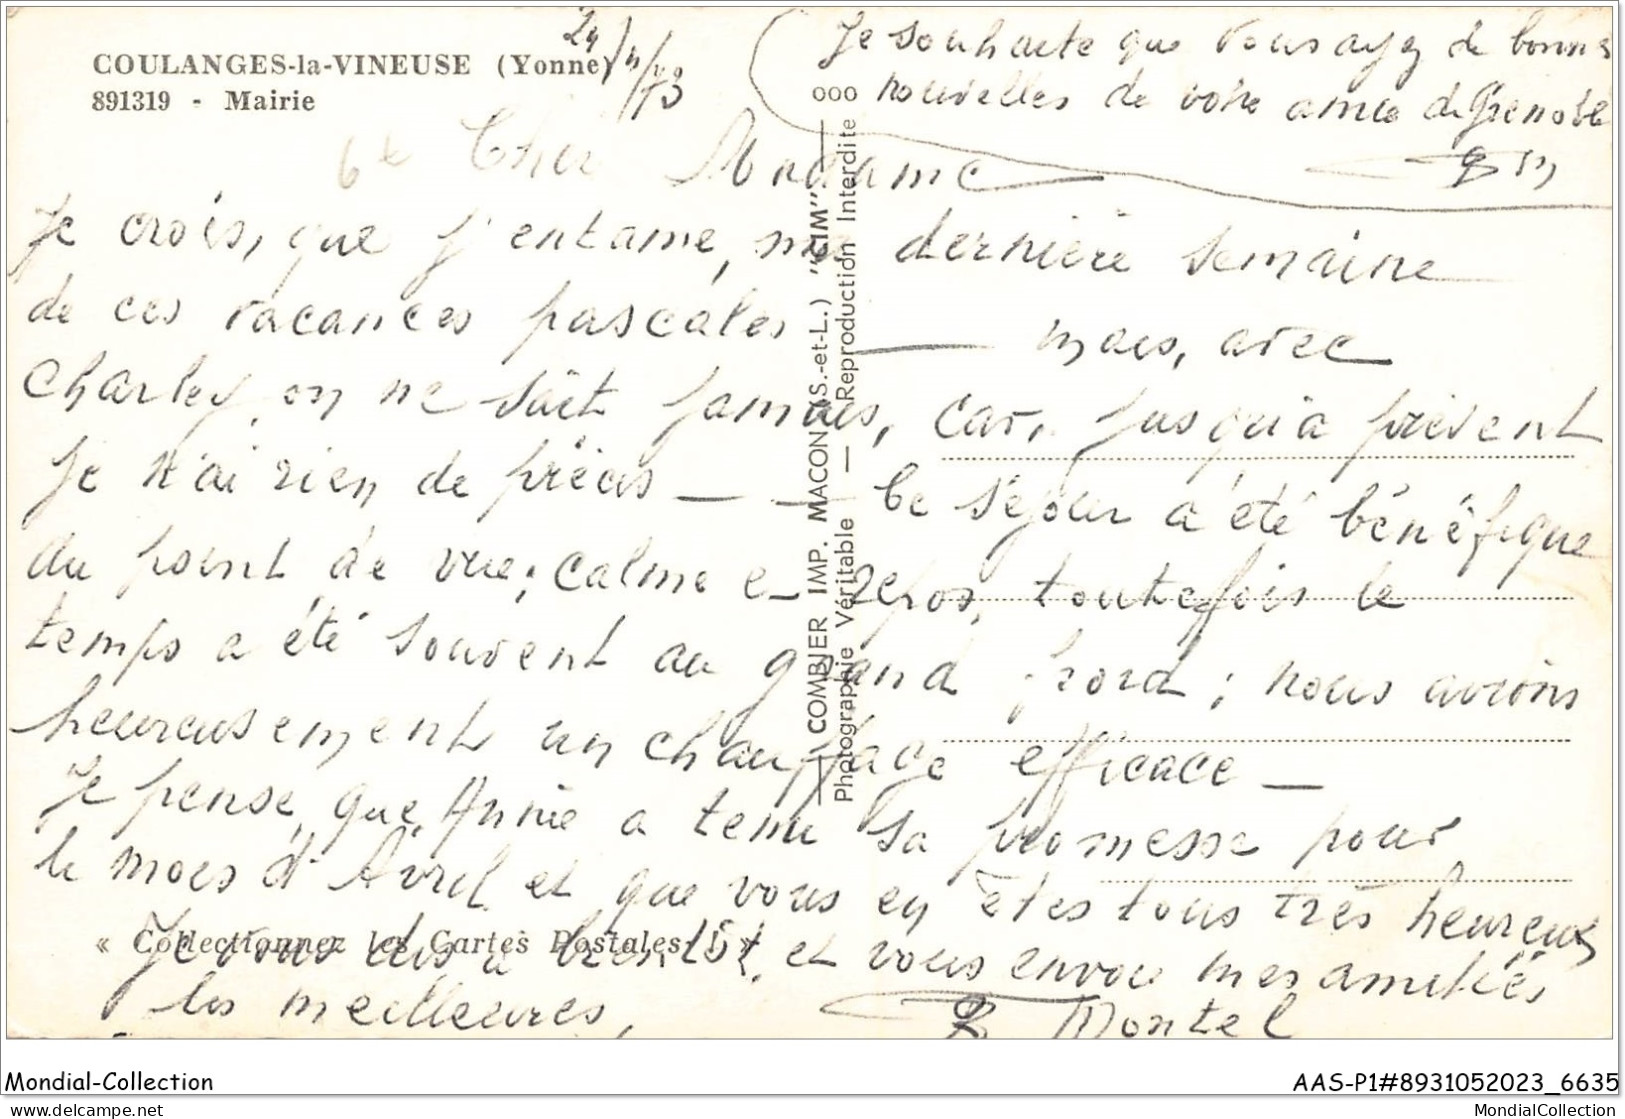 COULANGES-la-VINEUSE (Yonne)
891319 - Mairie
24/4/73
Je souhaite que vous ayez de bonnes
nouvelles de votre amie de Grenoble
Madame
Je crois, que j'entame, ma dernière semaine
de ces vacances pascales — mais, avec
Charley, on ne sait jamais, car, jusqu'à présent
je n'ai rien de précis — — Ce séjour a été bénéfique
du point de vue; calme et repos, toutefois le
temps a été souvent au grand froid; nous avions
heureusement un chauffage efficace —
Je pense, que, Annie a tenu sa promesse pour
le mois d'Avril et que vous en êtes tous très heureux
Je vous dis à bientôt, et vous envoie mes amitiés
les meilleures,
R Montel
« Collectionnez les Cartes Postales ! »
COMBIER IMP. MACON (S.-et-L.) "CIM"
Photographie Véritable — Reproduction Interdite
Mondial-Collection
AAS-P1#8931052023_6635
https://www.delcampe.net
MondialCollection